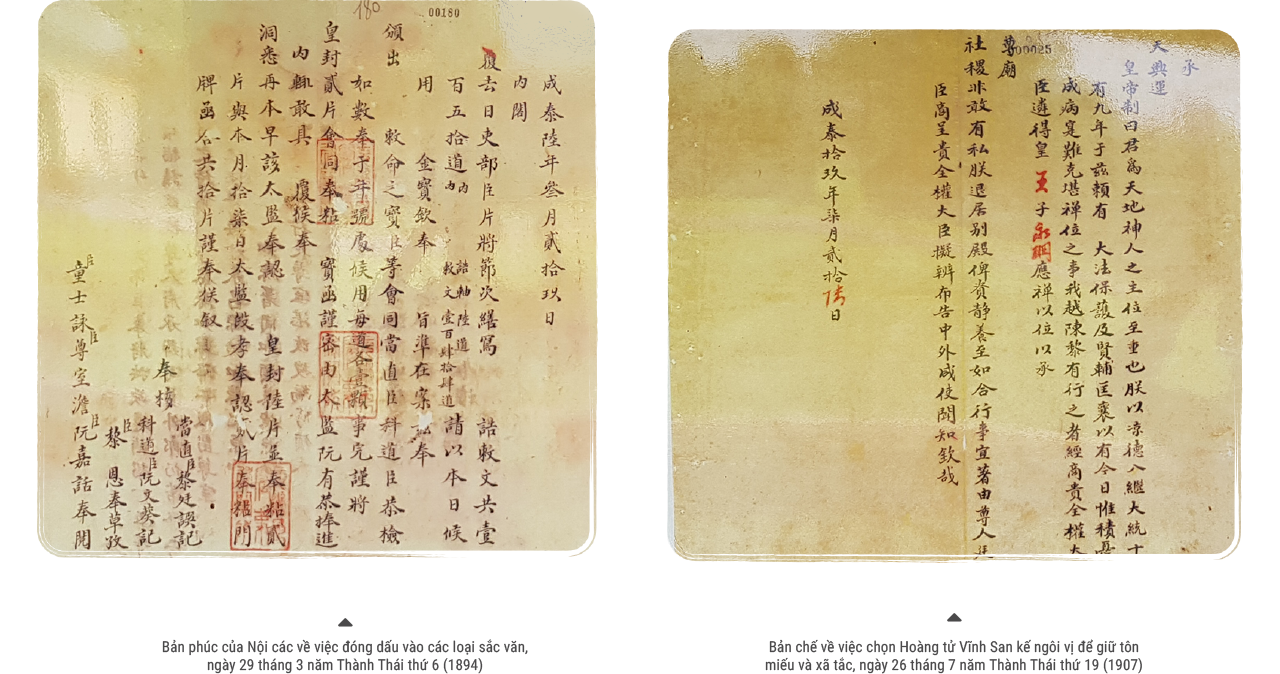 180
00180
成泰陸年叄月貳拾玖日
內閣
覆去日吏部臣片將節次繕寫 誥敕文共壹
百五拾道內 誥勅陸道 敕文壹百肆拾肆道 請以本日候
用 金寶欽奉 旨準在案茲奉
頒出 敕命之寶臣等會同當直臣科道臣恭檢
如數奉于年號處候用每道各壹顆事完謹將
皇封貳片會同奉粘 寶函謹密由太監阮有恭捧進
內輒敢具 覆候奉
洞悉再本早該太監奉認 皇封陸片並奉粘貳
片與本月拾柒日太監段孝奉認貳片奉粘門
牌函各共拾片謹奉候叙
奉檢
當直臣黎廷謨記
科道臣阮文葵記
臣黎 恩奉草攷
臣童士詠臣尊室澹臣阮嘉話奉閱
Bản phúc của Nội các về việc đóng dấu vào các loại sắc văn,
ngày 29 tháng 3 năm Thành Thái thứ 6 (1894)
00025
承
天興運
皇帝制曰君爲天地神人之主位至重也朕以凉德入繼大統十
有九年于茲賴有 大法保護及賢輔匡襄以有今日惟積憂
成病寔難克堪禪位之事我越陳黎有行之者經商貴全權大
臣遴得皇 王 子永珊應禪以位以承
尊廟
社稷非敢有私朕退居别殿俾資靜養至如合行事宜著由尊人廷
臣商呈貴全權大臣擬辨布告中外咸使聞知欽哉
成泰拾玖年柒月貳拾陸日
Bản chế về việc chọn Hoàng tử Vĩnh San kế ngôi vị để giữ tôn
miếu và xã tắc, ngày 26 tháng 7 năm Thành Thái thứ 19 (1907)